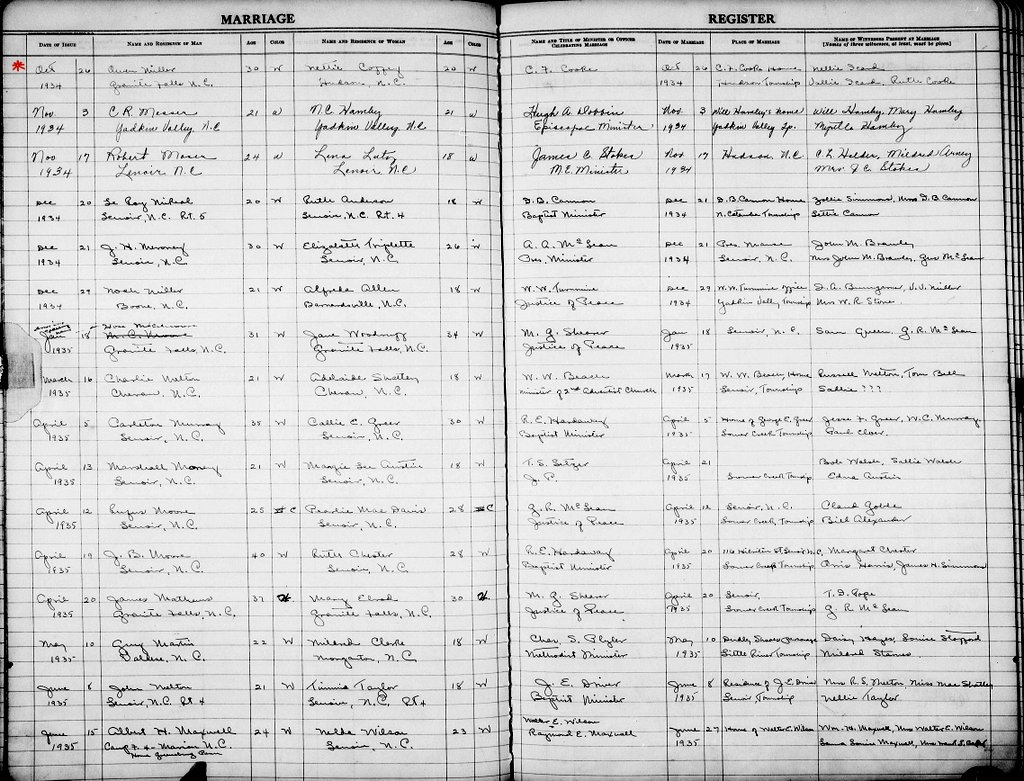 MARRIAGE REGISTER
DATE OF ISSUE NAME AND RESIDENCE OF MAN AGE COLOR NAME AND RESIDENCE OF WOMAN AGE COLOR NAME AND TITLE OF MINISTER OR OFFICER CELEBRATING MARRIAGE DATE OF MARRIAGE PLACE OF MARRIAGE NAMES OF WITNESSES PRESENT AT MARRIAGE [Names of three witnesses, at least, must be given]
* Oct 26 Owen Miller 30 W Nettie Coffey 20 W C. F. Cooke Oct 26 C. F. Cooke Home Nellie Icard
1934 Granite Falls N.C. Hudson, N.C. 1934 Hudson Township Vallie Icard, Ruth Cooke
Nov 3 C R. Messer 21 W N C Hamby 21 W Hugh A Dobbin Nov 3 Will Hamby's Home Will Hamby, Mary Hamby
1934 Yadkin Valley N.C Yadkin Valley N.C Episcopal Minister 1934 Yadkin Valley Tp. Myrtle Hamby
Nov 17 Robert Moser 24 W Lena Lutz 18 W James C Stokes Nov 17 Hudson, N.C C. L. Holder, Mildred Arney
1934 Lenoir N.C Lenoir N.C M.E. Minister 1934 Mrs. J C. Stokes
Dec 20 Le Roy 20 W Ruth Anderson 18 W D. B. Cannon Dec 21 D. B. Cannon Home Zollie Simmons, Mrs D. B Cannon
1934 Lenoir, N.C. Rt. 5 Lenoir, N.C. Rt. 4 Baptist Minister 1934 N. Catawba Township Cannon
Dec 21 J. H. Mooney 30 W Elizabeth Triplette 26 W A. A. McLean Dec 21 Pres. Manse John M. Brawley
1934 Lenoir, N.C Lenoir, N.C Pres. Minister 1934 Lenoir, N.C. Mrs John M. Brawley, McLean
Dec 29 Noah Miller 21 W Alfreda Allen 18 W W. W. Tummire Dec 29 W. W. Tummire Office J. A. Bumgarner, Miller
1934 Boone, N.C. Barnardsville, N.C. Justice of Peace 1934 Yadkin Valley Township Mrs W. R Stone
Jan 18 31 W Jane Woodruff 34 W M. G. Shearer Jan 18 Lenoir, N.C. Sam Green, G. R. McLean
1935 Granite Falls, N.C. Granite Falls, N.C. Justice of Peace 1935
March 16 Charlie Melton 21 W Adelaide Shatley 18 W W. W. Beach March 17 W. W. Beach, Home Russell Melton, Tom Bell
1935 N.C. N.C. Minister of 2nd Adventist Church 1935 Lenoir, Township Sallie ???
April 5 Carleton Murray 35 W Callie E. Greer 30 W R. E. Hardaway April 5 Home of George E. Greer Jesse F. Greer, W. C. Murray
1935 Lenoir, N.C. Lenoir, N.C. Baptist Minister 1935 Lower Creek Township Paul
April 13 Marshall Money 21 W Margie Lee Austin 18 W T. S. Setzer April 21 Bob Walsh, Sallie Walsh
1935 Lenoir, N.C. Lenoir, N.C. J. P. 1935 Lower Creek Township Edna Austin
April 12 Rufus Moore 25 C Pearlie Mae Davis 28 C G. R. McLean April 12 Lenoir, N.C. Claud Goble
1935 Lenoir, N.C. Lenoir, N.C. Justice of Peace 1935 Lower Creek, Township Bill Alexander
April 19 J. B. Moore 40 W Ruth Chester 28 W R. E. Hardaway April 20 116 St Lenoir N.C, Margaret Chester
1935 Lenoir, N.C. Lenoir, N.C. Baptist Minister 1935 Lower Creek Township Harris, James H. Simmons
April 20 James Mathews 37 Mary Elrod 30 M. G. Shearer April 20 Lenoir, T. D. Pope
1935 Granite Falls, N.C. Granite Falls, N.C. Justice of Peace 1935 Lower Creek Township G. R McLean
May 10 Guy Martin 22 W Mildred Clarke 18 W Chas. S. Plyler May 10 Dudly Shoals Parsonage Daisy Hayes, Louise Stafford
1935 N.C. Morganton, N.C Methodist Minister 1935 Little River Township Mildred Starnes
June 8 John Melton 21 W Timmie Taylor 18 W J. E. Driver June 8 Residence of J. E. Driver Mrs R. S. Melton, Miss Mae Shatley
1935 Lenoir, N.C. Rt 4 Lenoir, N.C. Rt 4 Baptist Minister 1935 Lenoir Township Nellie Taylor
June 15 Albert H. Maxwell 24 W Nelda Wilson 23 W Walter E. Wilson June 27 Home of Walter E. Wilson Wm. H. Maxwell, Mrs Walter E. Wilson
1935 Camp F. 4 - Marion N.C. Lenoir, N.C. Raymond E. Maxwell 1935 Louise Maxwell,